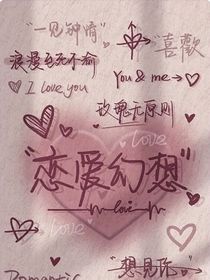 "一见钟情"
"喜歡"
浪漫至死不渝
You & me →
I love you
玫瑰无原则
love
"恋爱幻想"
love
"想见你"
Romantic